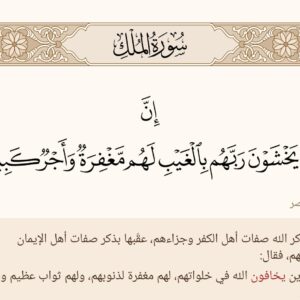 سُورَةُ الْمُلْكِ
إِنَّ
يَخْشَوْنَ رَبَّهُم بِالْغَيْبِ لَهُم مَّغْفِرَةٌ وَأَجْرٌ
كر الله صفات أهل الكفر وجزاءهم، عقّبها بذكر صفات أهل الإيمان
هم، فقال:
ين يخافون الله في خلواتهم، لهم مغفرة لذنوبهم، ولهم ثواب عظيم و